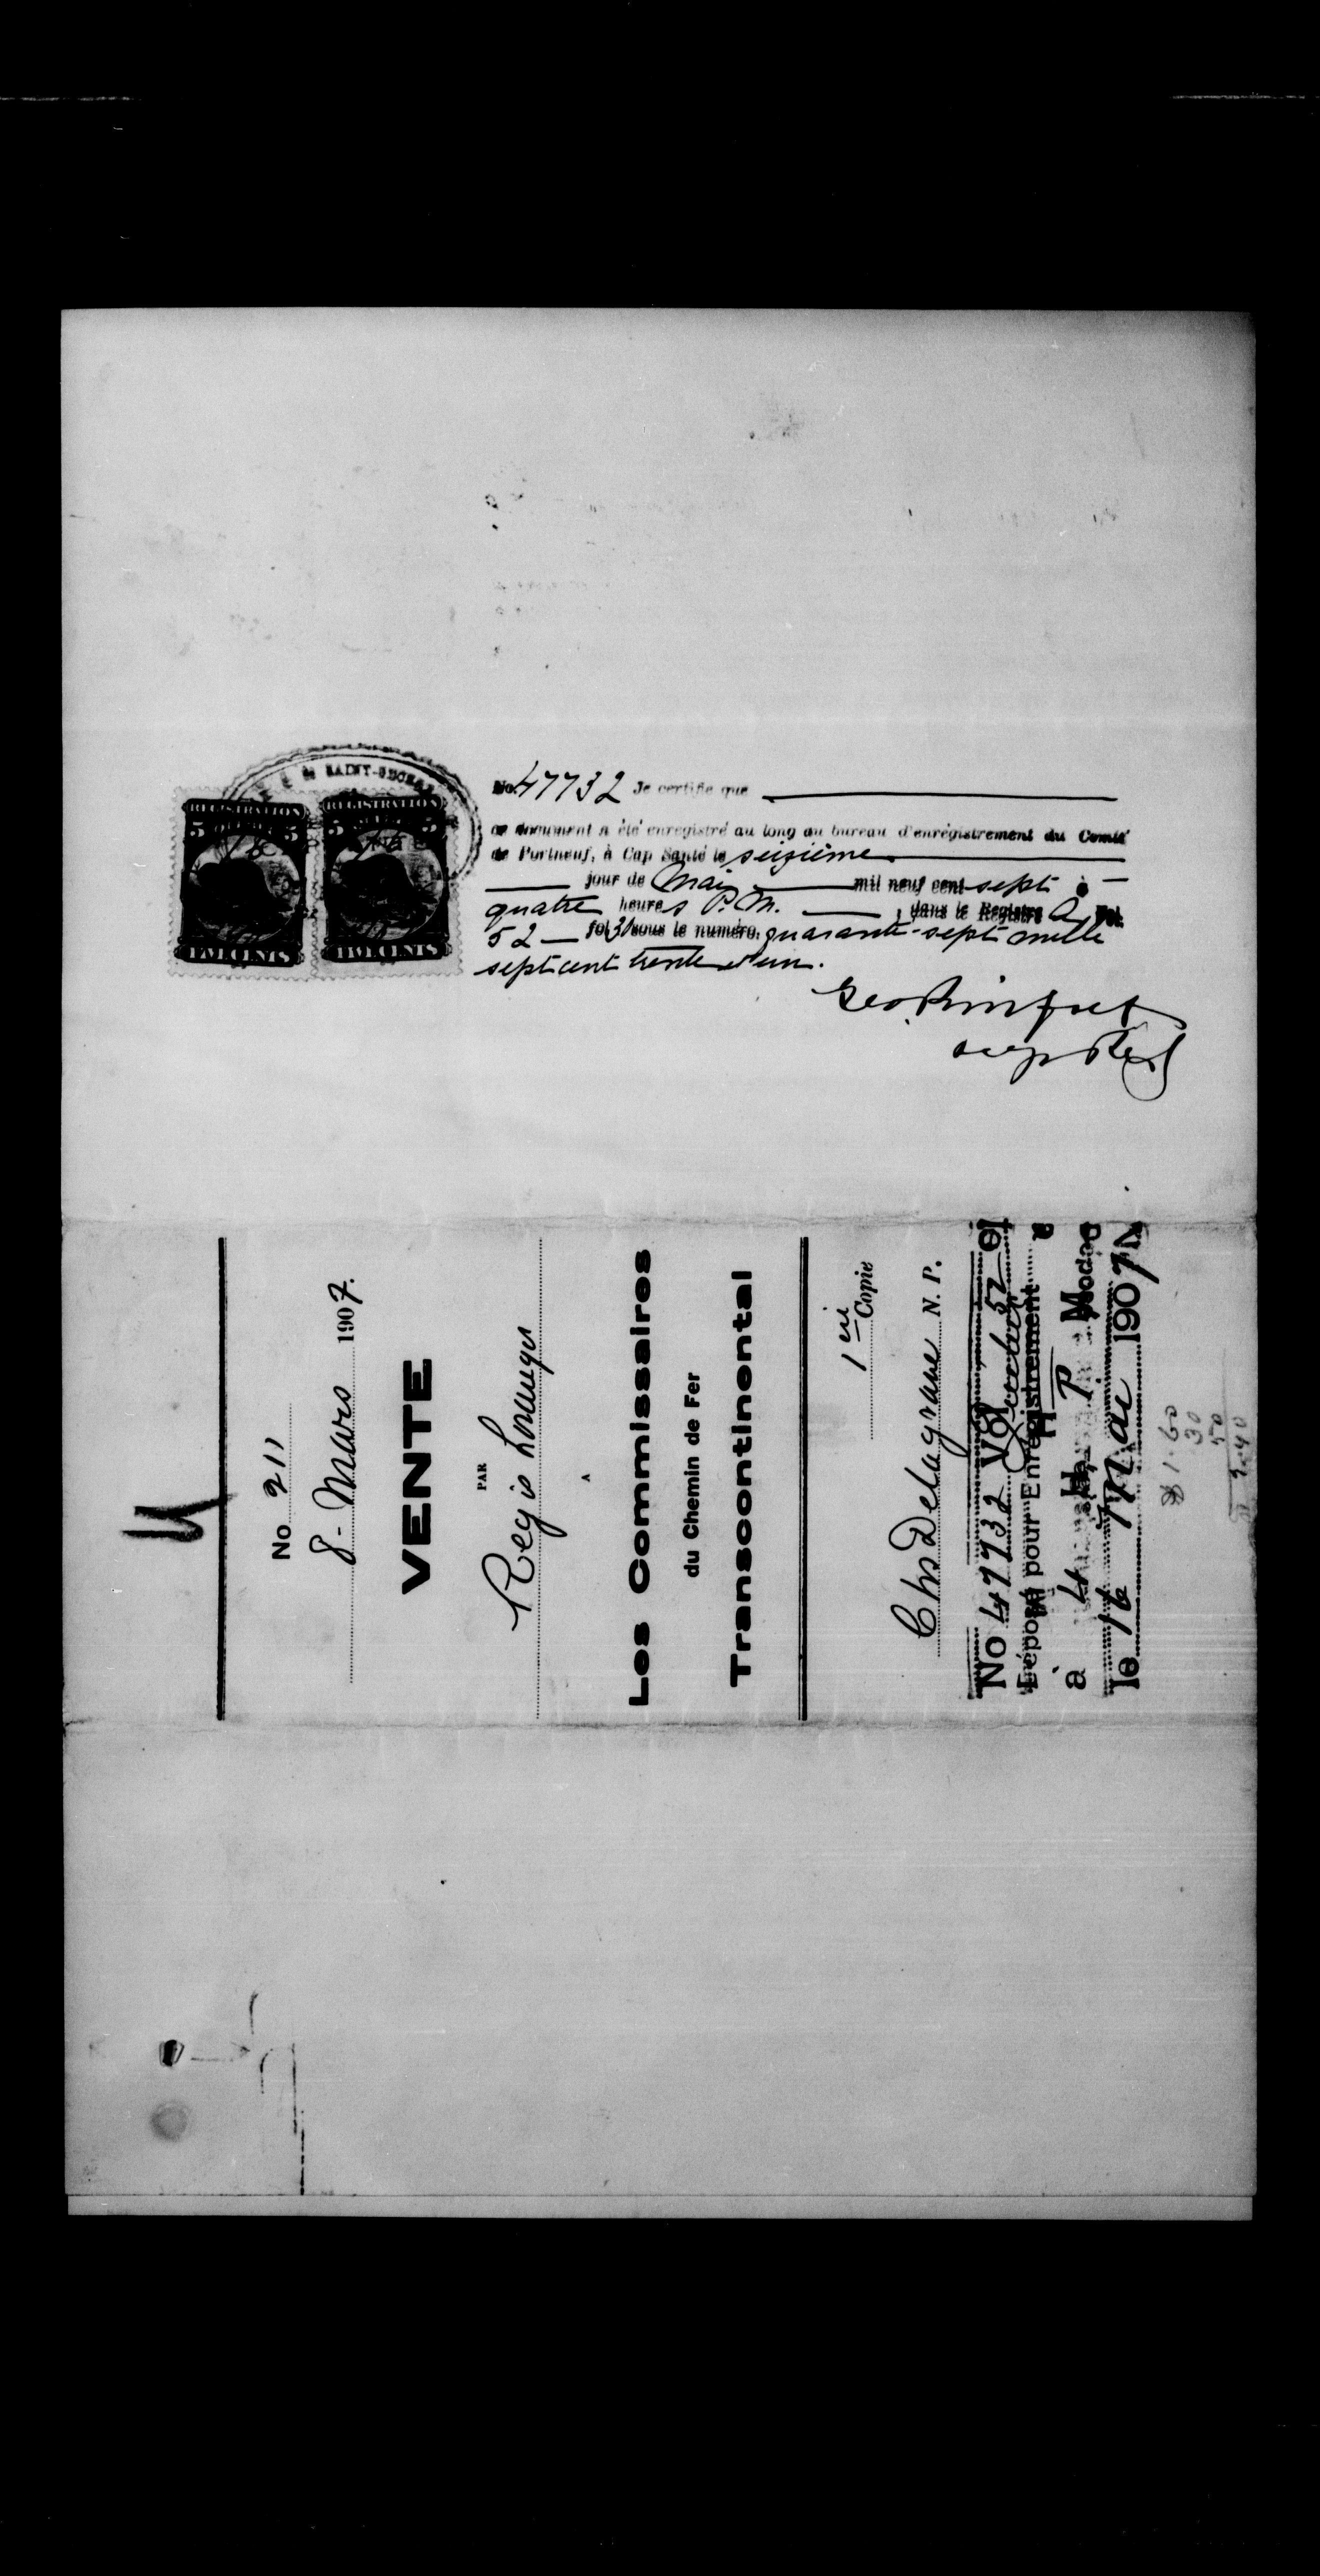 SAINT-
REGISTRATION
5 5
FIVE CENTS
REGISTRATION
5 5
FIVE CENTS
No. 47732 Je certifie que
ce document a été enregistré au long au bureau d'enrégistrement du Comté
de Portneuf, à Cap Santé le seizième
jour de Mai mil neuf cent sept à
quatre heures P.M. , dans le Registre Vol.
52 fol sous le numéro. quarante-sept mille
sept cent trente
No 211
8 - Mars 1907.
VENTE
PAR
Regis
A
Les Commissaires
du Chemin de Fer
Transcontinental
1 Copie
Chs Delagrave N. P.
No 47732 Vol 52
Déposé pour Enregistrement
à 4 H P M
le 16 Mai 1907
$1.60
30
50
2.40